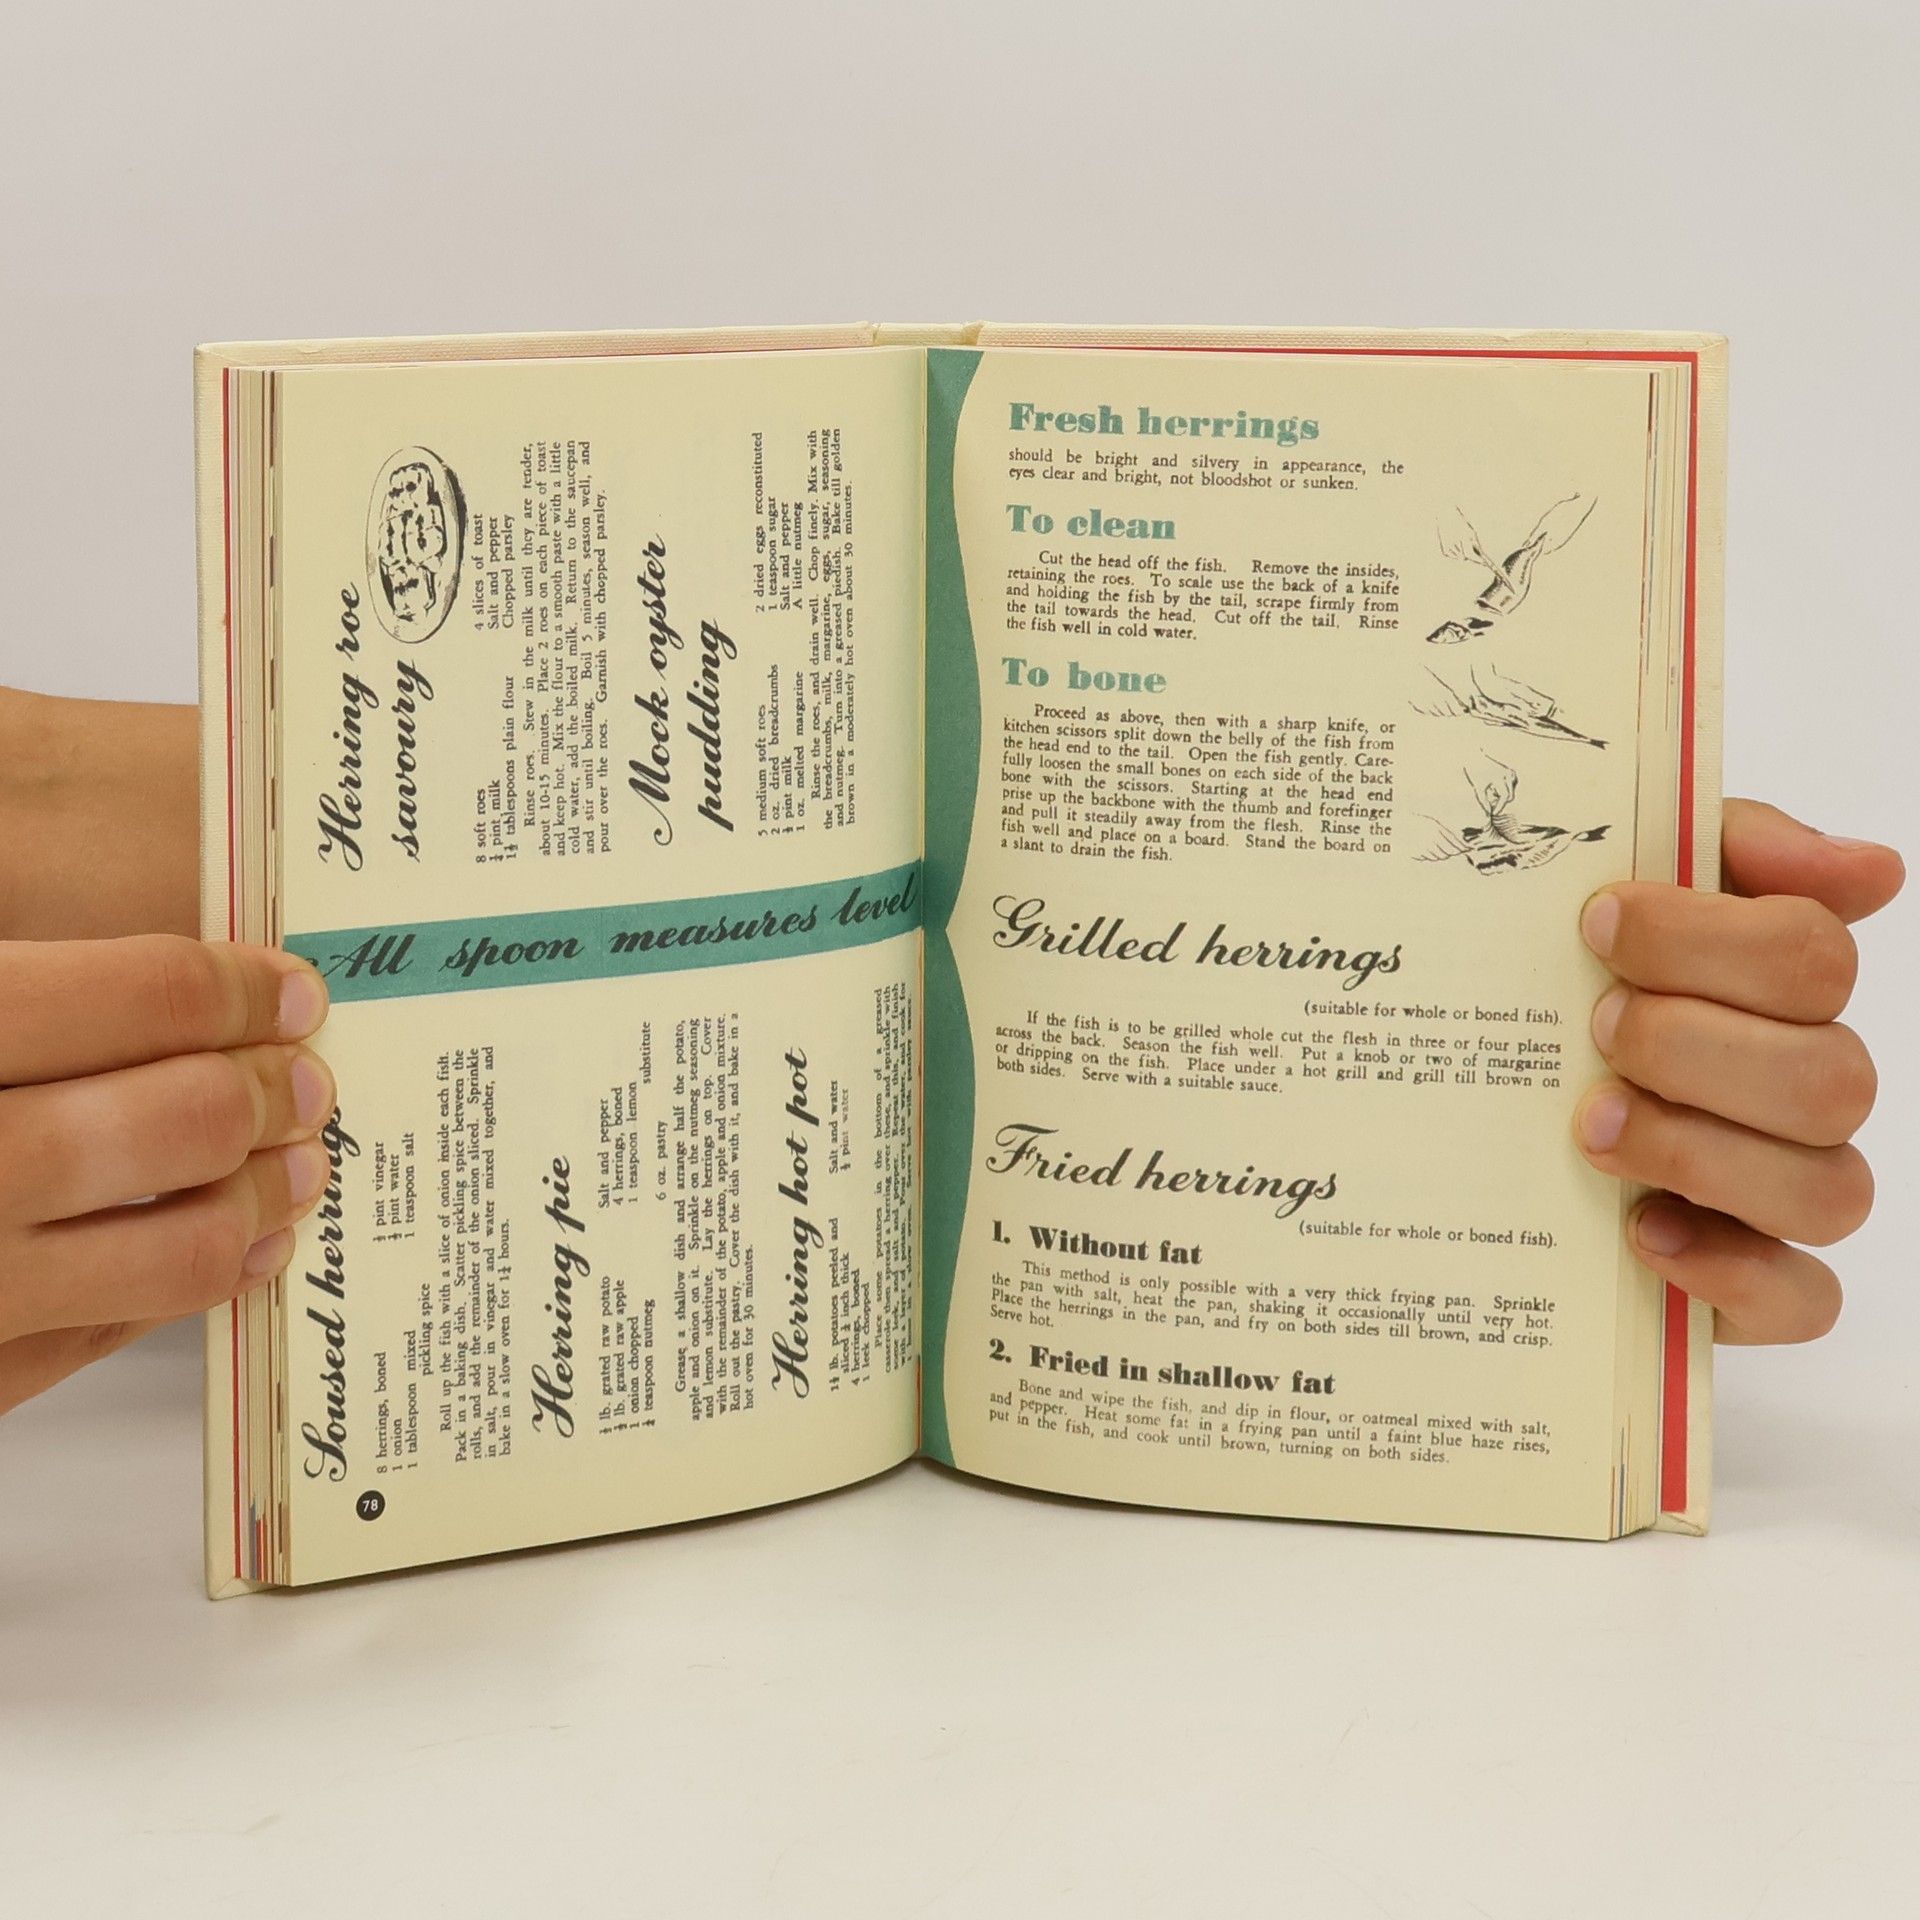 Soused herrings
8 herrings, boned
1 onion
1 tablespoon mixed
pickling spice
pint vinegar
pint water
1 teaspoon salt
Roll up the fish with a slice of onion inside each fish.
Pack in a baking dish. Scatter pickling spice between the
rolls, and add the remainder of the onion sliced. Sprinkle
in salt, pour in vinegar and water mixed together, and
bake in a slow oven for 1½ hours.
Herring pie
lb. grated raw potato
lb. grated raw apple
1 onion chopped
teaspoon nutmeg
Salt and pepper
4 herrings, boned
1 teaspoon lemon
substitute
6 oz. pastry
Grease a shallow dish and arrange half the potato,
apple and onion on it. Sprinkle on the nutmeg seasoning
and lemon substitute. Lay the herrings on top. Cover
with the remainder of the potato, apple and onion mixture.
Roll out the pastry. Cover the dish with it, and bake in a
hot oven for 30 minutes.
Herring hot pot
1½ lb. potatoes peeled and
sliced ¼ inch thick
4 herrings, boned
1 leek chopped
Salt and water
pint water
Place some potatoes in the bottom of a greased
casserole then spread a herring over these, and sprinkle with
some leek, and salt and pepper. Repeat this, and finish
with a layer of potato. Pour over the water, and cook for
All spoon measures level
Herring roe
savoury
8 soft roes
pint milk
1½ tablespoons plain flour
4 slices of toast
Salt and pepper
Chopped parsley
Rinse roes. Stew in the milk until they are tender,
about 10-15 minutes. Place 2 roes on each piece of toast
and keep hot. Mix the flour to a smooth paste with a little
cold water, add the boiled milk. Return to the saucepan
and stir until boiling. Boil 5 minutes, season well, and
pour over the roes. Garnish with chopped parsley.
Mock oyster
pudding
5 medium soft roes
2 oz. dried breadcrumbs
pint milk
1 oz. melted margarine
2 dried eggs reconstituted
1 teaspoon sugar
Salt and pepper
A little nutmeg
Rinse the roes, and drain well. Chop finely. Mix with
the breadcrumbs, milk, margarine, eggs, sugar, seasoning
and nutmeg. Turn into a greased piedish. Bake till golden
brown in a moderately hot oven about 30 minutes.
78
Fresh herrings
should be bright and silvery in appearance, the
eyes clear and bright, not bloodshot or sunken.
To clean
Cut the head off the fish. Remove the insides,
retaining the roes. To scale use the back of a knife
and holding the fish by the tail, scrape firmly from
the tail towards the head. Cut off the tail. Rinse
the fish well in cold water.
To bone
Proceed as above, then with a sharp knife, or
kitchen scissors split down the belly of the fish from
the head end to the tail. Open the fish gently. Care-
fully loosen the small bones on each side of the back
bone with the scissors. Starting at the head end
prise up the backbone with the thumb and forefinger
and pull it steadily away from the flesh. Rinse the
fish well and place on a board. Stand the board on
a slant to drain the fish.
Grilled herrings
(suitable for whole or boned fish).
If the fish is to be grilled whole cut the flesh in three or four places
across the back. Season the fish well. Put a knob or two of margarine
or dripping on the fish. Place under a hot grill and grill till brown on
both sides. Serve with a suitable sauce.
Fried herrings
(suitable for whole or boned fish).
1. Without fat
This method is only possible with a very thick frying pan. Sprinkle
the pan with salt, heat the pan, shaking it occasionally until very hot.
Place the herrings in the pan, and fry on both sides till brown, and crisp.
Serve hot.
2. Fried in shallow fat
Bone and wipe the fish, and dip in flour, or oatmeal mixed with salt,
and pepper. Heat some fat in a frying pan until a faint blue haze rises,
put in the fish, and cook until brown, turning on both sides.